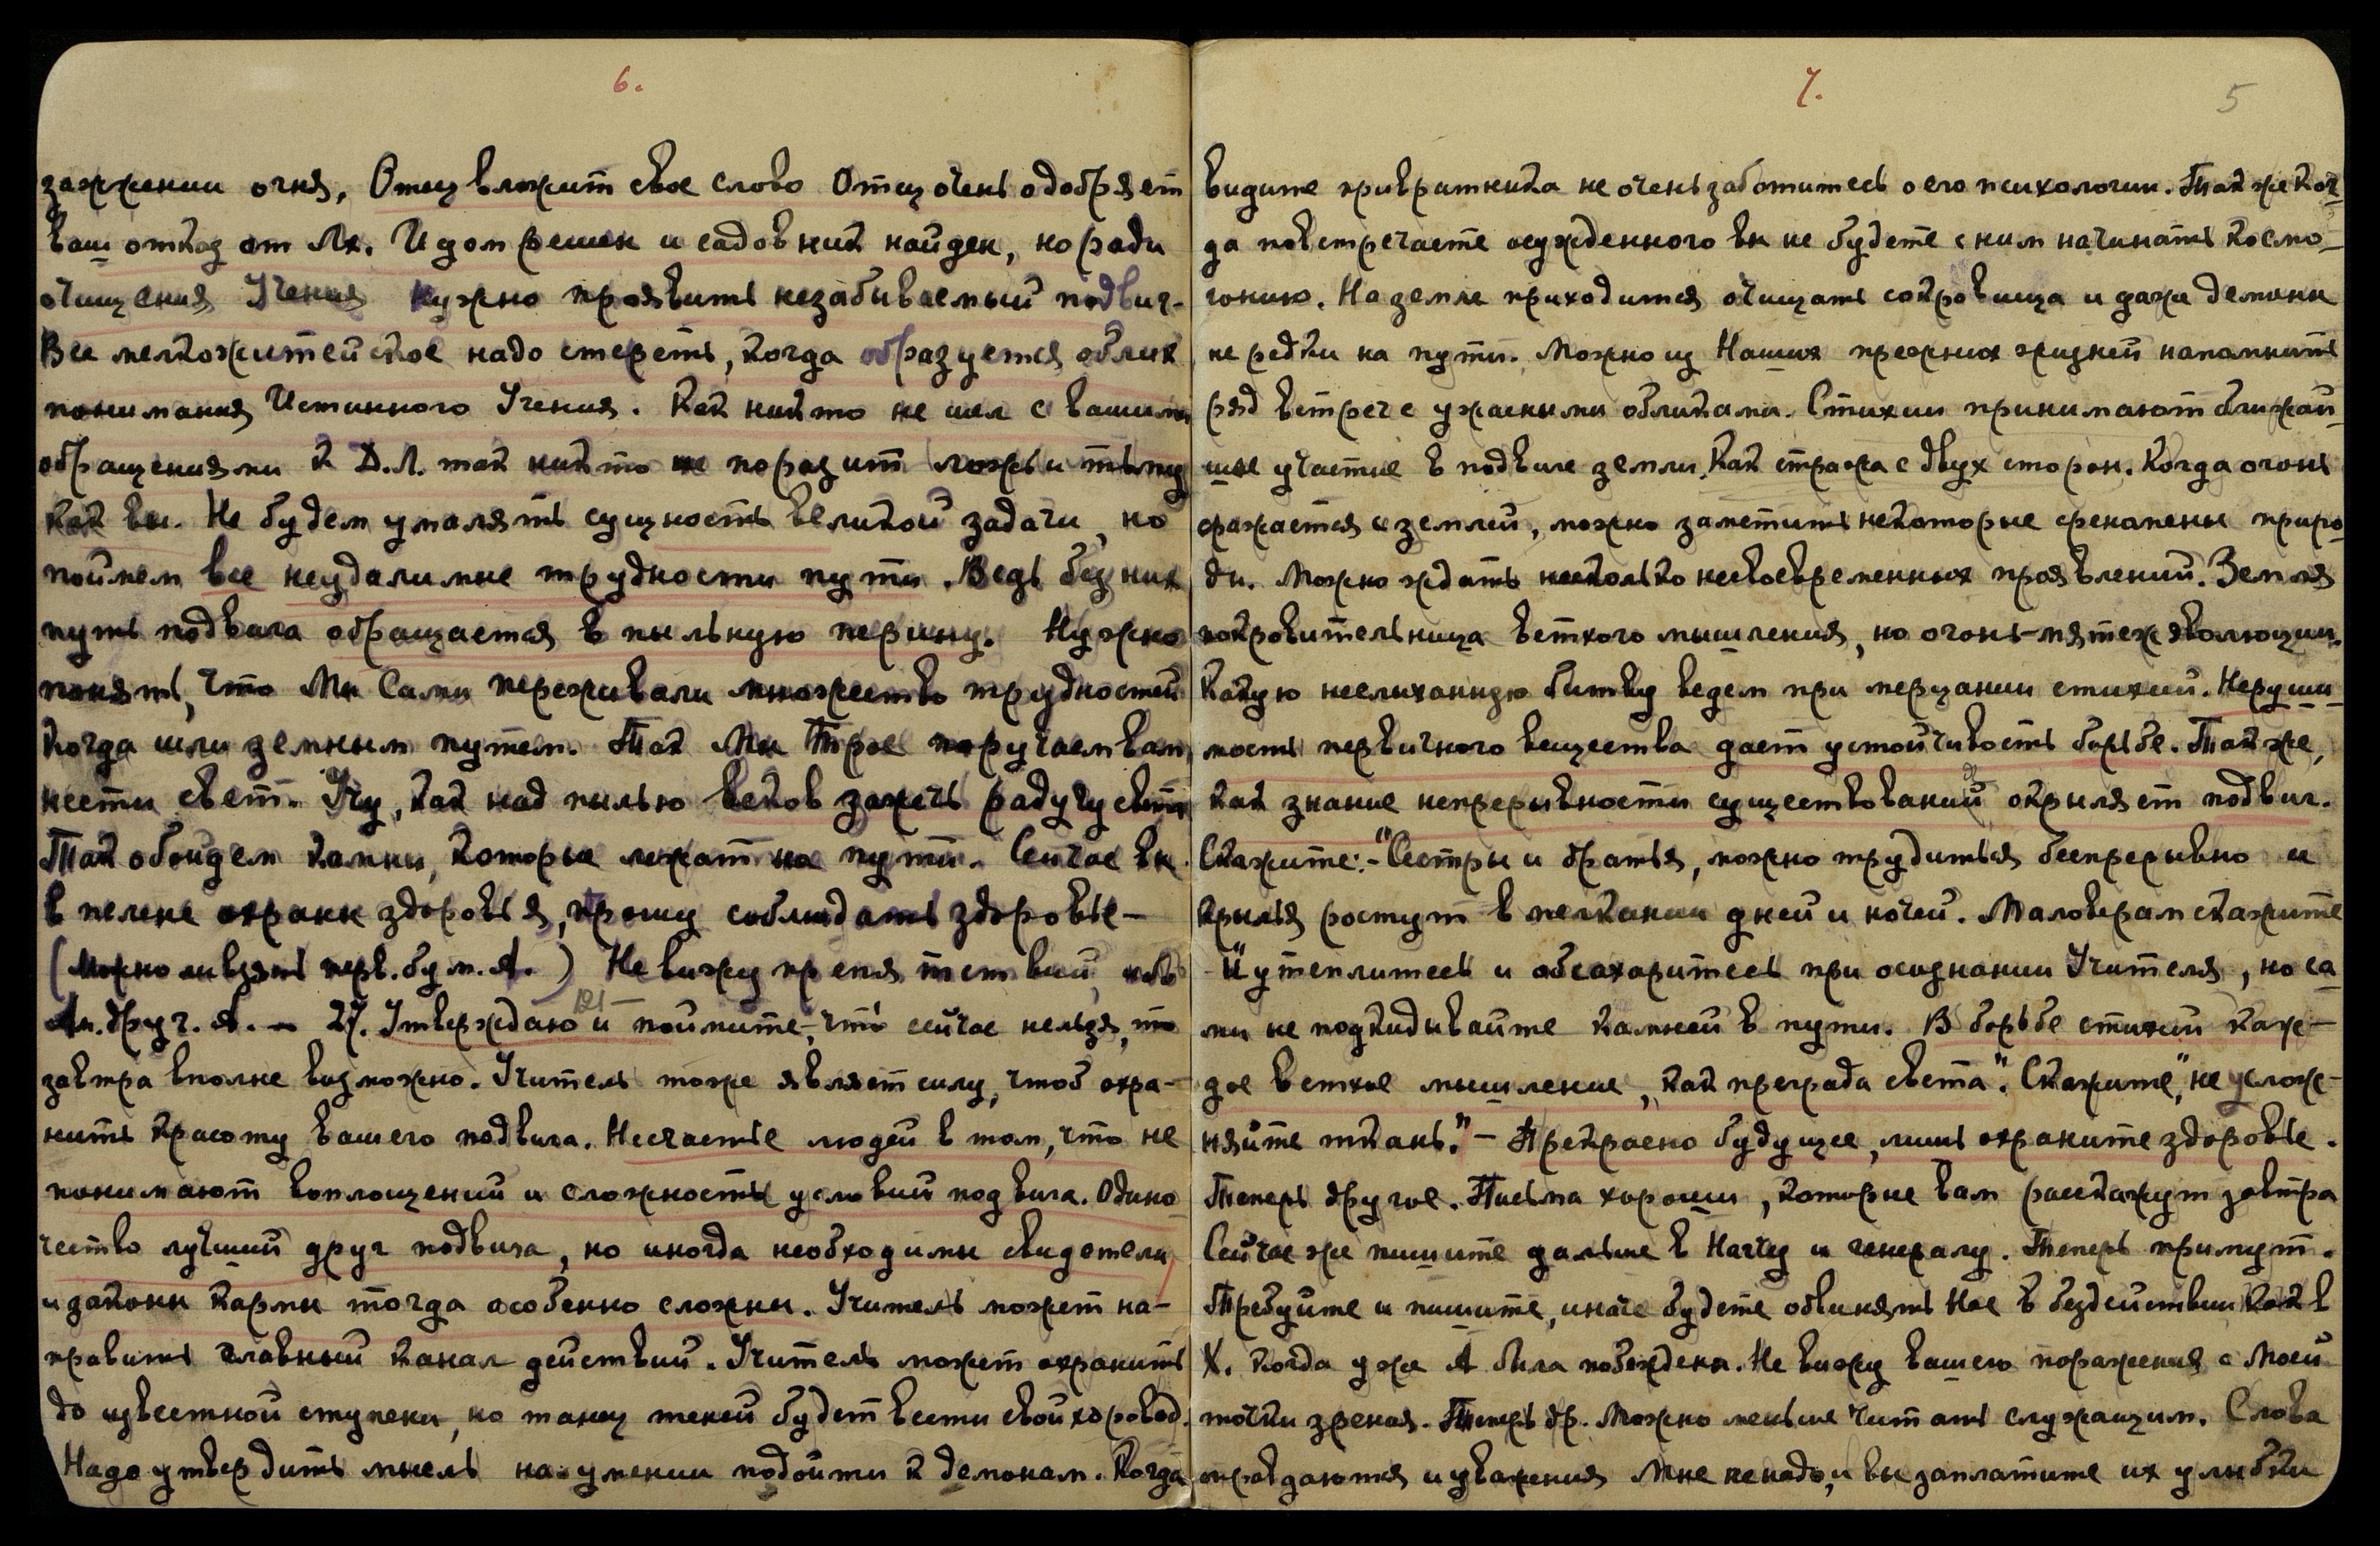 6.
зажжении огня, Отец вложит свое слово Отец очень одобряет
ваш отказ от Лх. И дом решен и садовник найден, но ради
очищения Учения нужно проявить незабываемый подвиг-
Все мелкожитейское надо стереть, когда образуется облик
понимания Истинного Учения. Как никто не шел с вашими
обращениями к Д.Л. так никто не поразит ложь и тьму
как вы. Не будем умалять сущность великой задачи, но
поймем все неудалимые трудности пути. Ведь без них
путь подвига обращается в пыльную перину. Нужно
понять, что Мы Сами переживали множество трудностей
когда шли земным путем. Так Мы Трое поручаем вам
нести свет. Учу, как над пылью веков зажечь радугу света
Так обойдем камни, которые лежат на пути. Сейчас вы
в пелене охраны здоровья, прошу соблюдать здоровье-
(Можно ли взять перв. бум. А.) Не вижу препятствий
Ам. друг. А. - 27. Утверждаю и поймите, что сейчас нельзя, то
121-
завтра вполне возможно. Учитель тоже являет силу, чтоб охра-
нить красоту вашего подвига. Несчастье людей в том, что не
понимают воплощений и сложность условий подвига. Одино
чество лучший друг подвига, но иногда необходимы свидетели
и законы кармы тогда особенно сложны. Учитель может на-
править главный канал действий. Учитель может охранить
до известной ступени, но танец теней будет вести свой хоровод.
Надо утвердить мысль на умении подойти к демонам. Когда
7.
5
видите привратника не очень заботитесь о его психологии. Так же ког
да повстречаете осужденного вы не будете с ним начинать космо-
гонию. На земле приходится очищать сокровища и даже демоны
не редки на пути. Можно из Наших прежних жизней напомнить
ряд встреч с ужасными обликами. Стихии принимают ближай
шее участие в подвиге земли. Как стража с двух сторон. Когда огонь
сражается с землей, можно заметить некоторые феномены приро
ды. Можно ждать несколько несвоевременных проявлений. Земля
покровительница ветхого мышления, но огонь-мятеж эволюции.
Какую неслыханную битву ведем при мерцании стихий. Неруши
мость первичного вещества дает устойчивость борьбе. Так же,
как знание непрерывности существований окрыляет подвиг.
Скажите:-"Сестры и братья, можно трудиться беспрерывно и
крылья ростут в мелькании дней и ночей. Маловерам скажите
-"И утеплитесь и обсахаритесь при осознании Учителя, но са
ми не подкидывайте камней в пути. В борьбе стихий каж-
дое ветхое мышление, как преграда света". Скажите, "не услож-
няйте ткань." - Прекрасно будущее, лишь охраните здоровье.
Теперь другое. Письма хороши, которые вам расскажут завтра
Сейчас же пишите дальше в Нагчу и генералу. Теперь примут.
Требуйте и пишите, иначе будете обвинять Нас в бездействии как в
Х. когда уже А была побеждена. Не вижу вашего поражения с Моей
точки зрения. Теперь др. Можно меньше читать служащим. Слова
оправдаются и уважения Мне не надо, и вы заплатите их улыбки